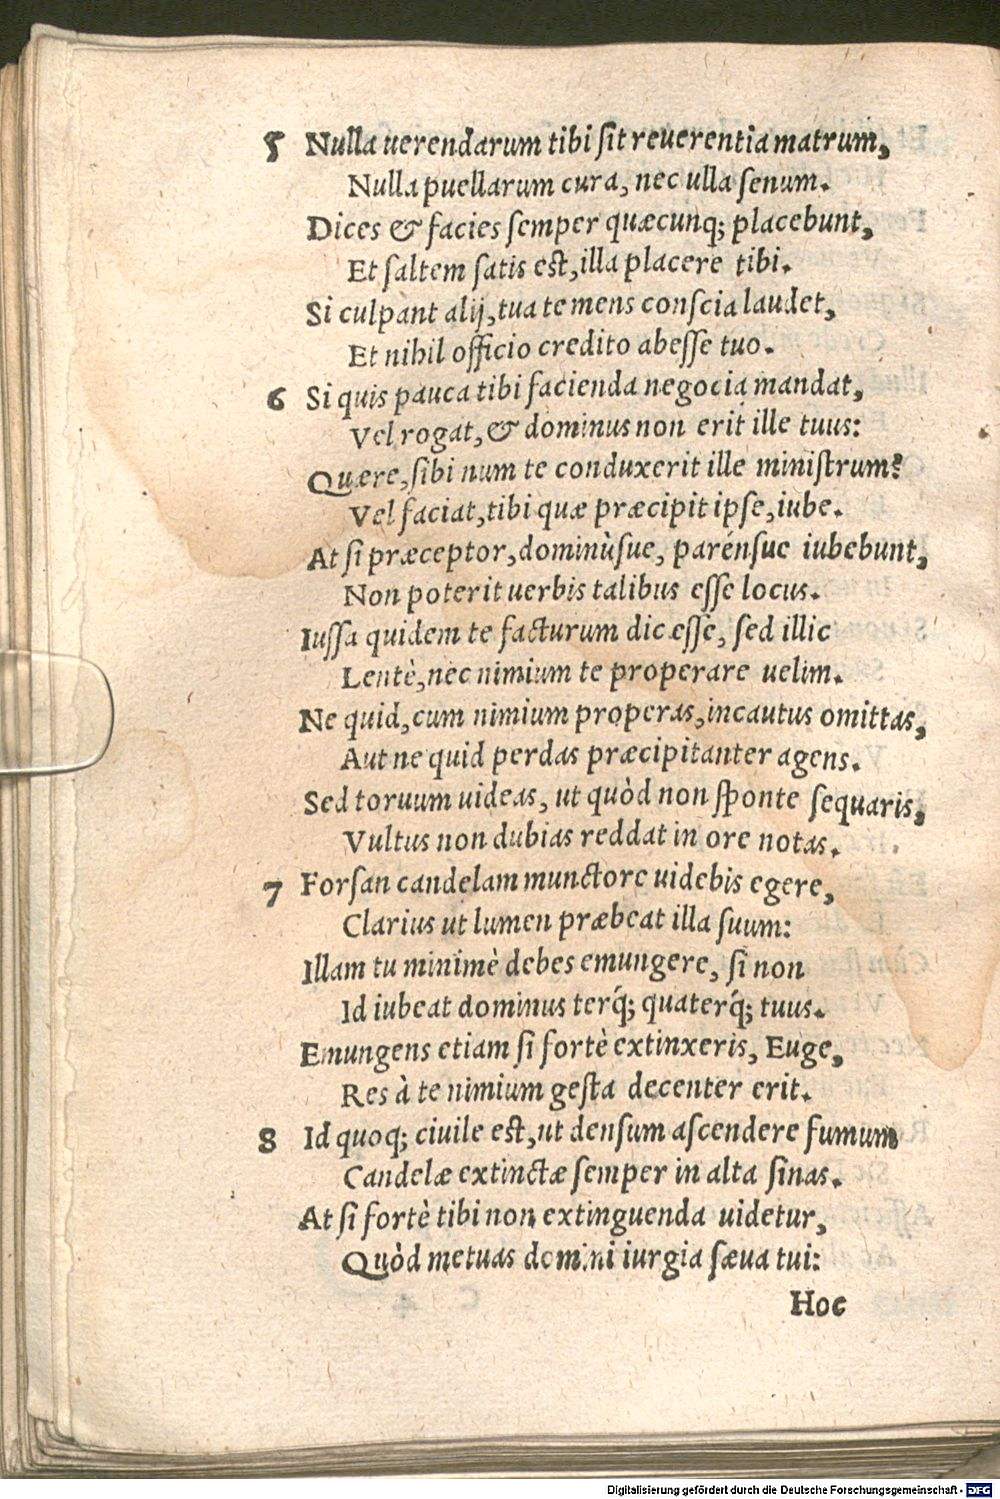 5 Nulla uerendarum tibi sit reuerentia matrum,
Nulla puellarum cura, nec ulla senum.
Dices & facies semper quæcunq; placebunt,
Et saltem satis est, illa placere tibi.
Si culpant alij, tua te mens conscia laudet,
Et nihil officio credito abesse tuo.
6 Si quis pauca tibi facienda negocia mandat,
Vel rogat, & dominus non erit ille tuus:
Quære, sibi num te conduxerit ille ministrum?
Vel faciat, tibi quæ præcipit ipse, iube.
At si præceptor, dominùsue, parénsue iubebunt,
Non poterit uerbis talibus esse locus.
Iussa quidem te facturum dic esse, sed illic
Lentè, nec nimium te properare uelim.
Ne quid, cum nimium properas, incautus omittas,
Aut ne quid perdas præcipitanter agens.
Sed toruum uideas, ut quòd non sponte sequaris,
Vultus non dubias reddat in ore notas.
7 Forsan candelam munctore uidebis egere,
Clarius ut lumen præbeat illa suum:
Illam tu minimè debes emungere, si non
Id iubeat dominus terq́; quaterq́; tuus.
Emungens etiam si fortè extinxeris, Euge,
Res à te nimium gesta decenter erit.
8 Id quoq; ciuile est, ut densum ascendere fumum
Candelæ extinctæ semper in alta sinas.
At si fortè tibi non extinguenda uidetur,
Quòd metuas domini iurgia sæua tui:
Hoc
Digitalisierung gefördert durch die Deutsche Forschungsgemeinschaft - DFG